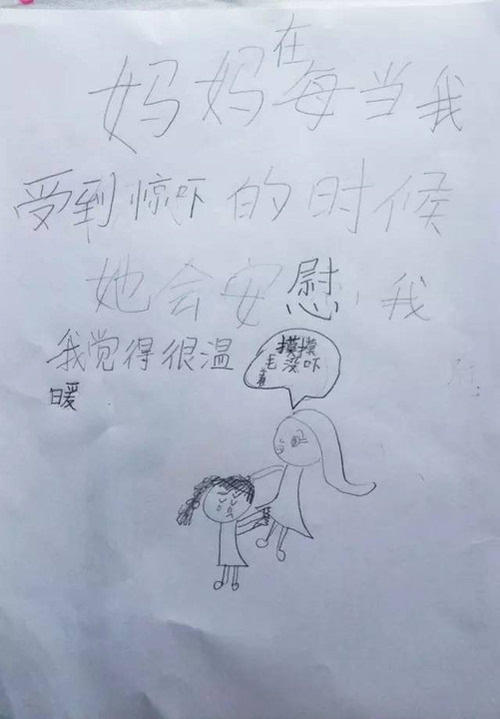 妈妈在每当我
受到惊吓的时候
她会安慰我
我觉得很温
暖
摸摸
毛没吓
着